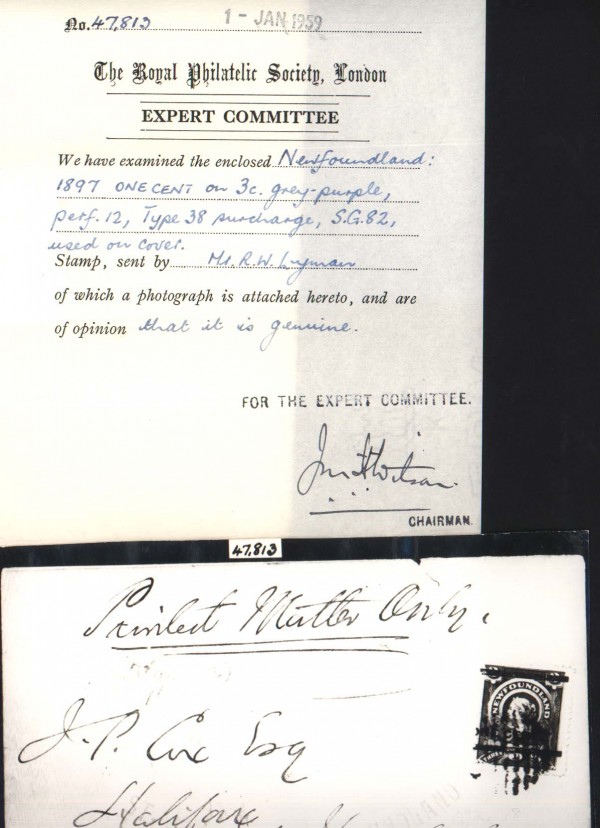 No. 47,813
1 - JAN 1959
The Royal Philatelic Society, London
EXPERT COMMITTEE
We have examined the enclosed Newfoundland:
1897 ONE CENT on 3c. grey-purple,
perf. 12, Type 38 surcharge, S.G. 82,
used on cover.
Stamp, sent by Mr. R. W. Lyman
of which a photograph is attached hereto, and are
of opinion that it is genuine.
FOR THE EXPERT COMMITTEE.
CHAIRMAN.
47,813
Printed Matter Only.
NEWFOUNDLAND
J. P. Cox Esq
Halifax